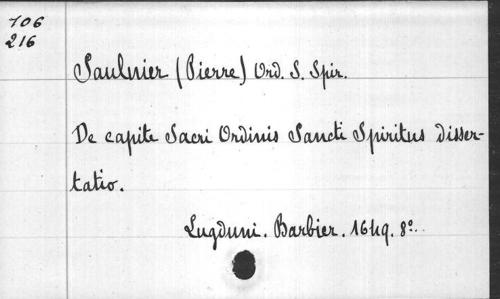 706
216
Saulnier (Pierre) Ord. S. Spir.
De capite Sacri Ordinis Sancti Spiritus disser-
tatio.
Lugduni. Barbier. 1649. 8°.